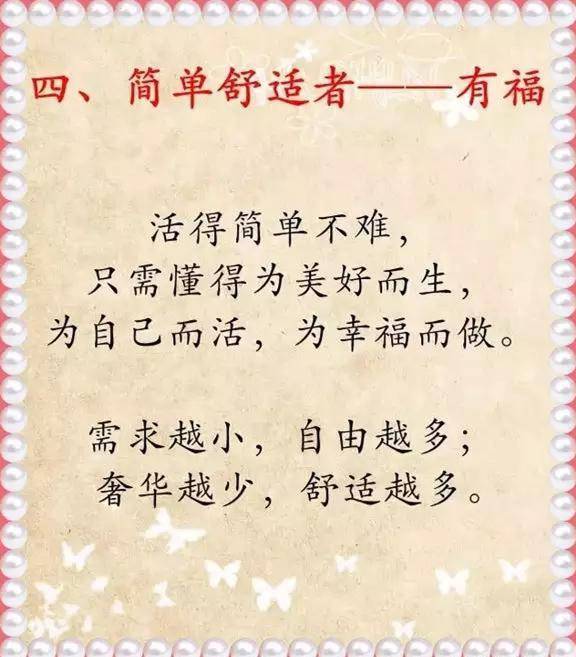 四、简单舒适者——有福
活得简单不难，
只需懂得为美好而生，
为自己而活，为幸福而做。
需求越小，自由越多；
奢华越少，舒适越多。